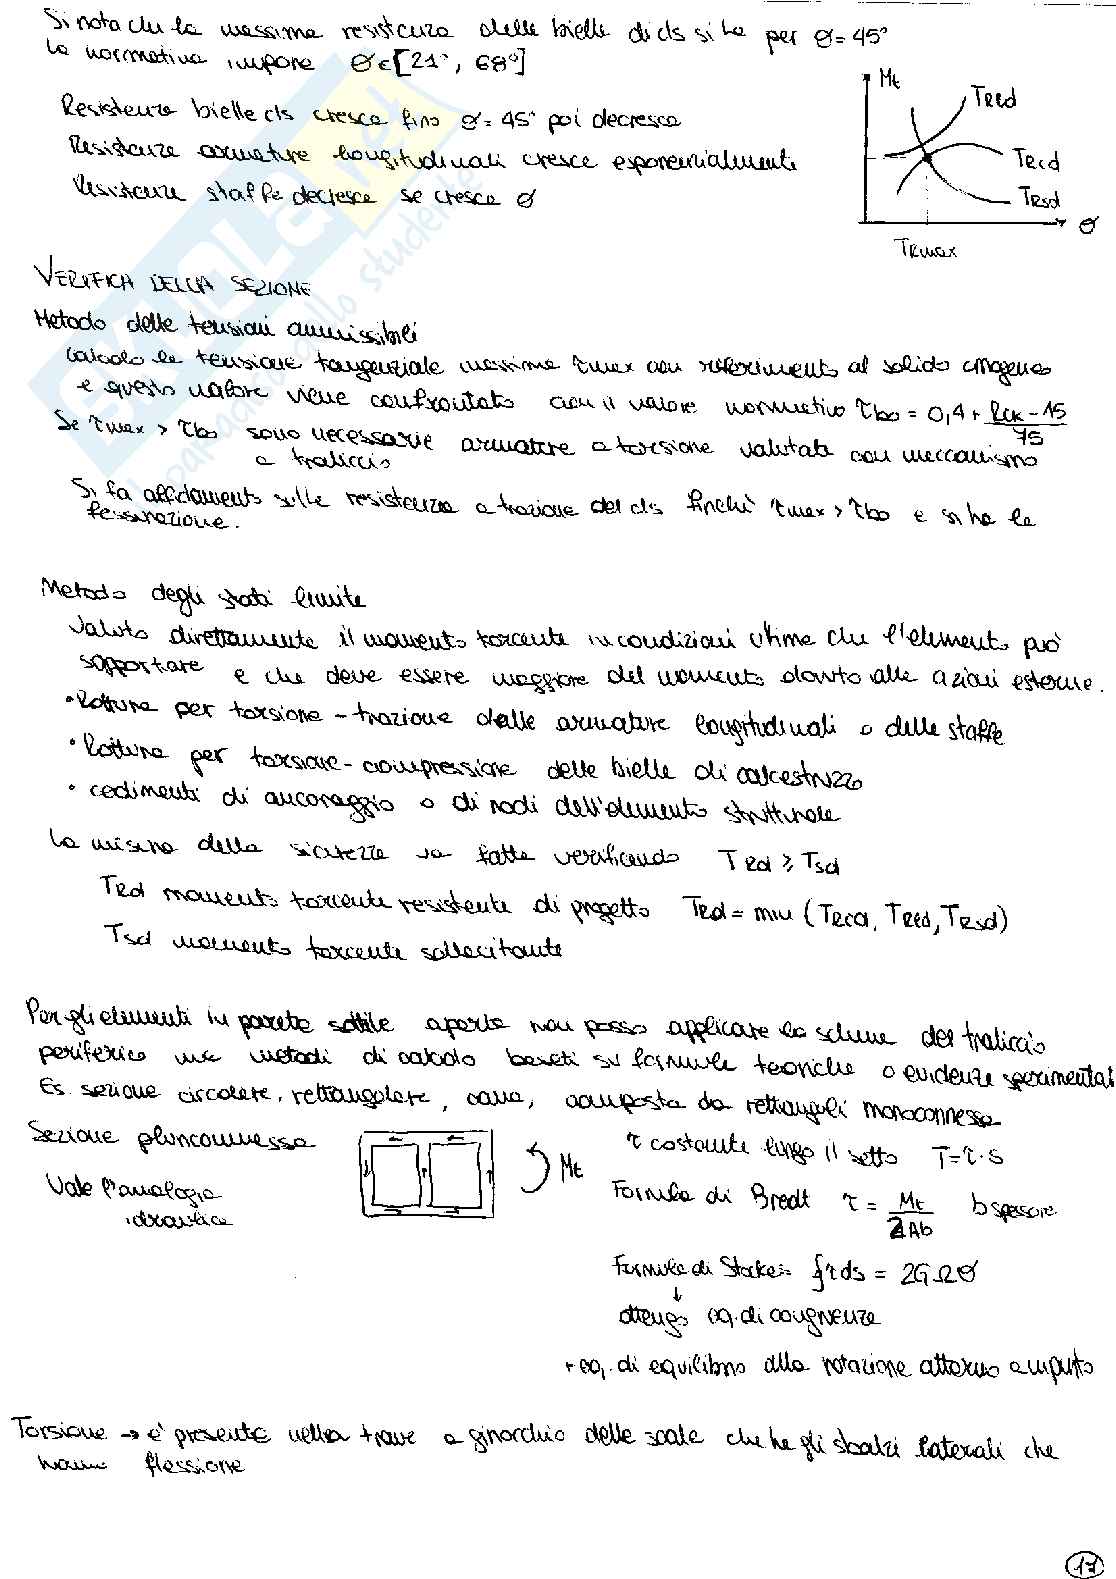 Si nota che la massima resistenza delle bielle di cls si ha per θ = 45°
La normativa impone θ ∈ [21°, 68°]
Resistenza bielle cls cresce fino θ = 45° poi decresce
Resistenza armature longitudinali cresce esponenzialmente
Resistenza staffe decresce se cresce θ
Mt
TRld
TRcd
TRsd
θ
TRmax
VERIFICA DELLA SEZIONE
Metodo delle tensioni ammissibili
Calcolo la tensione tangenziale massima τmax con riferimento al solido omogeneo
e questo valore viene confrontato con il valore normativo τb0 = 0,4 + Rck - 15 / 75
Se τmax > τb0 sono necessarie armature a torsione valutate con meccanismo
a traliccio
Si fa affidamento sulla resistenza a trazione del cls finchè τmax > τb0 e si ha la
fessurazione.
Metodo degli stati limite
Valuto direttamente il momento torcente in condizioni ultime che l'elemento può
sopportare e che deve essere maggiore del momento dovuto alle azioni esterne.
• Rottura per torsione - trazione delle armature longitudinali o delle staffe
• Rottura per torsione - compressione delle bielle di calcestruzzo
• cedimenti di ancoraggio o di nodi dell'elemento strutturale
La misura della sicurezza va fatta verificando TRd ≥ Tsd
TRd momento torcente resistente di progetto TRd = min (TRcd, TRld, TRsd)
Tsd momento torcente sollecitante
Per gli elementi in parete sottile aperta non posso applicare lo schema del traliccio
periferico ma metodi di calcolo basati su formule teoriche o evidenze sperimentali
Es. sezione circolare, rettangolare, cava, composta da rettangoli monoconnessa
Sezione pluriconnessa
Mt
τ costante lungo il setto T = τ · s
Vale l'analogia
idraulica
Formula di Bredt τ = Mt / 2Ab b spessore
Formula di Stokes ∮τds = 2GΩθ
↓
ottengo eq. di congruenza
+ eq. di equilibrio alla rotazione attorno a un punto
Torsione → è presente nella trave a ginocchio delle scale che ha gli sbalzi laterali che
hanno flessione
17